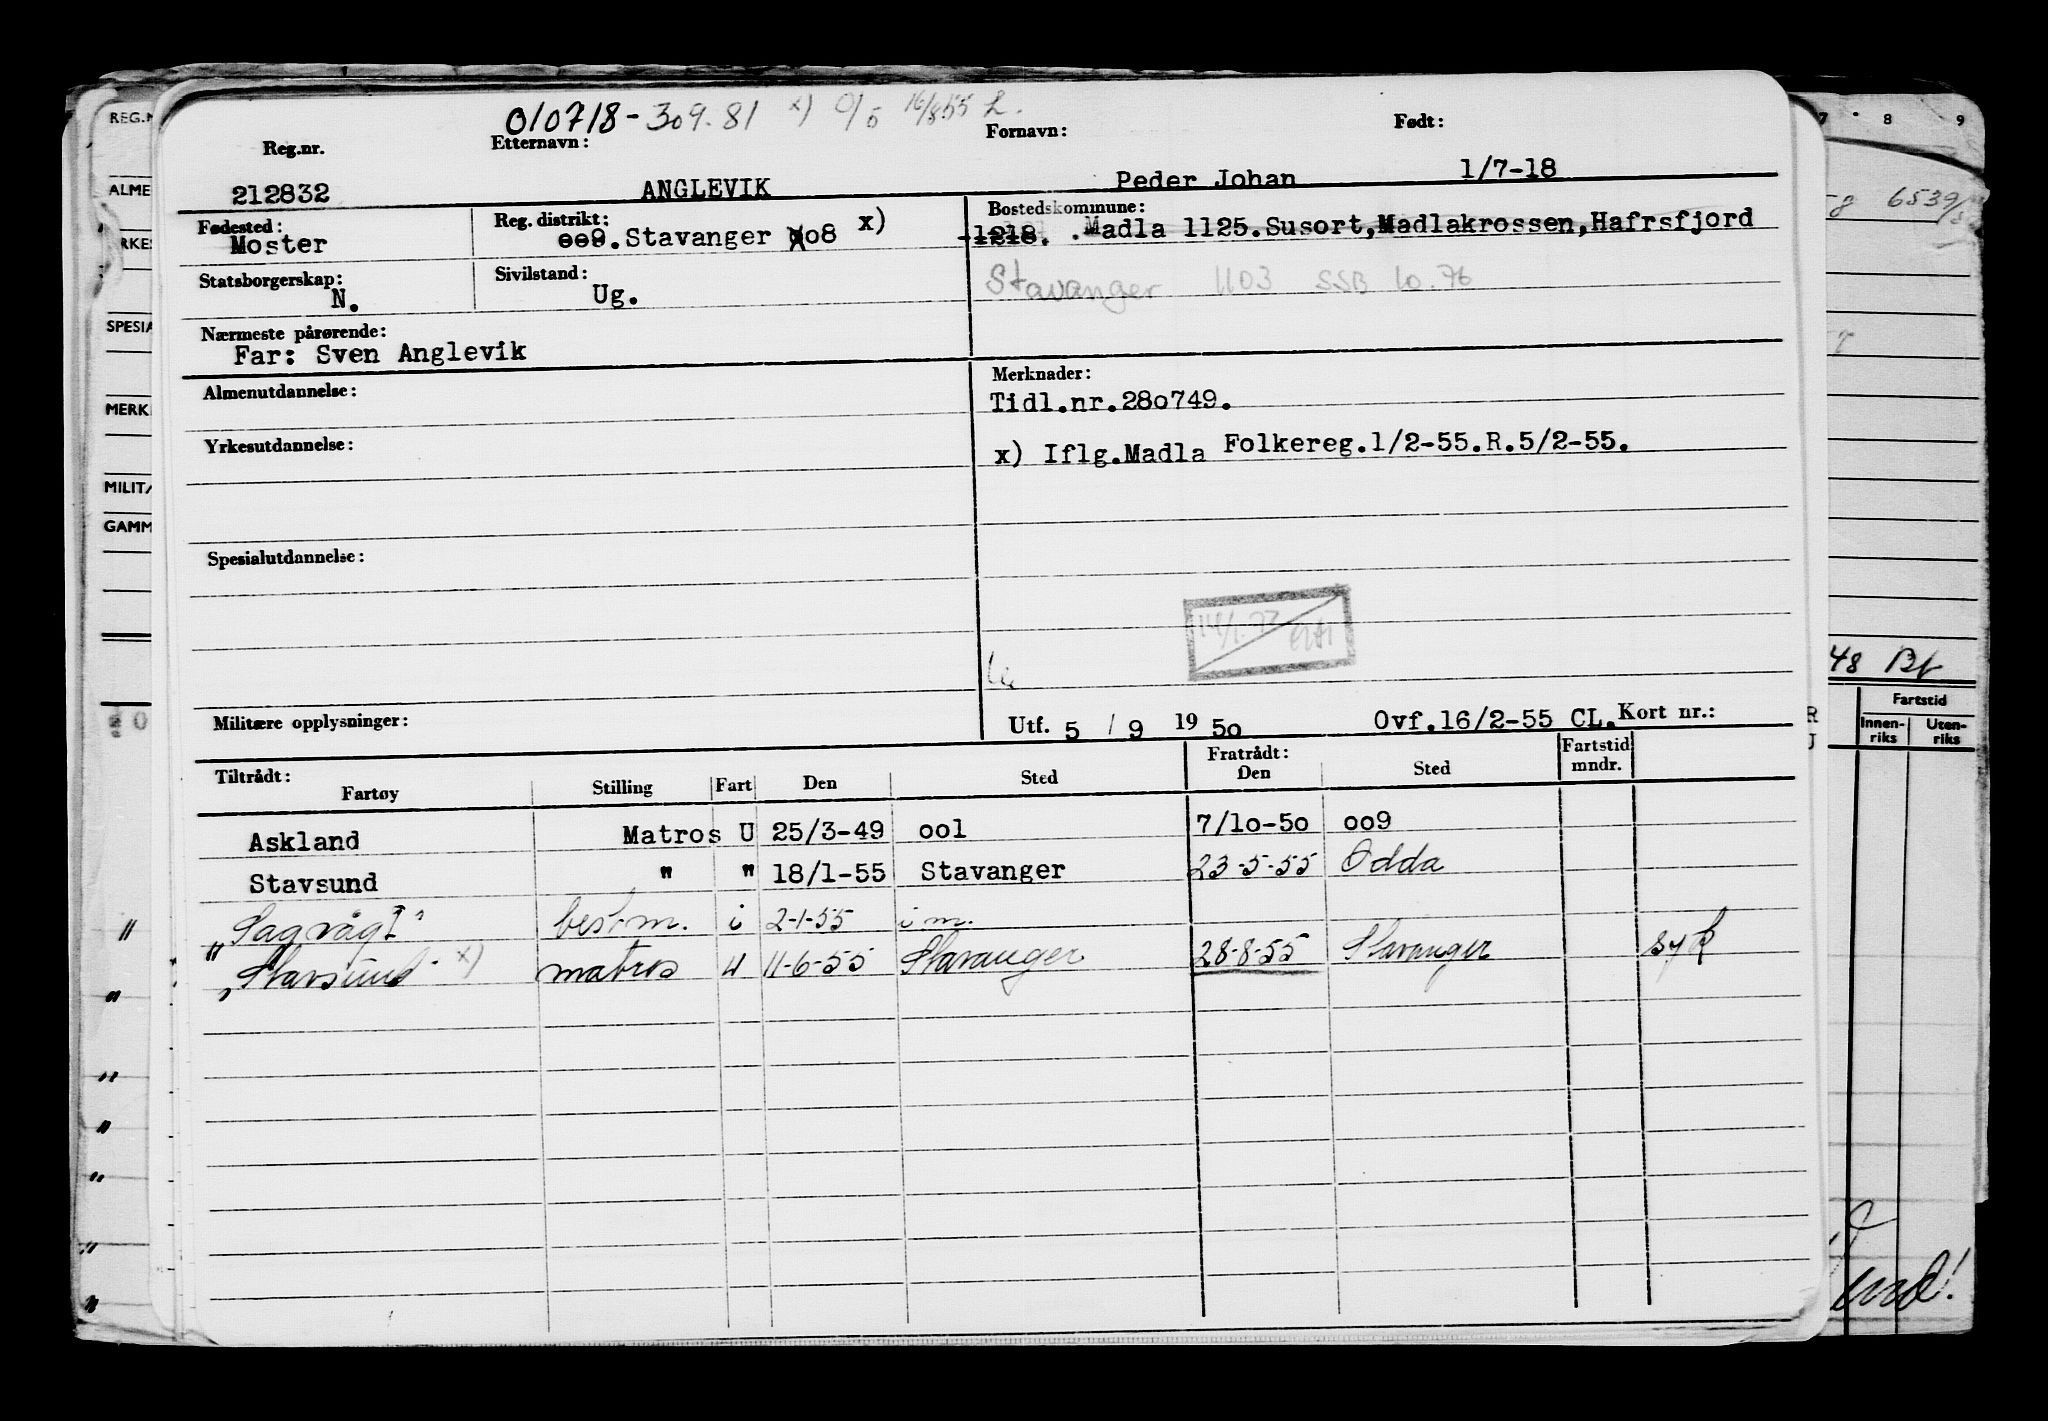 010718-309.81 x) 16/8 55 L.
Reg.nr. Etternavn: Fornavn: Født:
212832 ANGLEVIK Peder Johan 1/7-18
Fødested: Reg. distrikt: Bostedskommune:
Moster 009.Stavanger o8 x) 1218. .Madla 1125.Susort,Madlakrossen,Hafrsfjord
Statsborgerskap: Sivilstand: Stavanger 1103 SSB 10.76
N. Ug.
Nærmeste pårørende:
Far: Sven Anglevik
Almenutdannelse: Merknader:
Tidl.nr.280749.
Yrkesutdannelse: x) Iflg.Madla Folkereg.1/2-55.R.5/2-55.
Spesialutdannelse:
Militære opplysninger: Utf. 5 / 9 19 50 Ovf.16/2-55 CL. Kort nr.:
Tiltrådt: Fratrådt: Fartstid
Fartøy Stilling Fart Den Sted Den Sted mndr.
Askland Matros U 25/3-49 001 7/10-50 009
Stavsund " " 18/1-55 Stavanger 23-5-55 Odda
"Sagvåg I" best.m. i 2-1-55 i m.
"Stavsund" x) matros u 11-6-55 Stavanger 28-8-55 Stavanger syk
REG.N
ALME
YRKES
SPESIA
MERK
MILITÆ
GAMM
7 8 9
6539/
48 Bf
Fartstid
Innen-riks Uten-riks